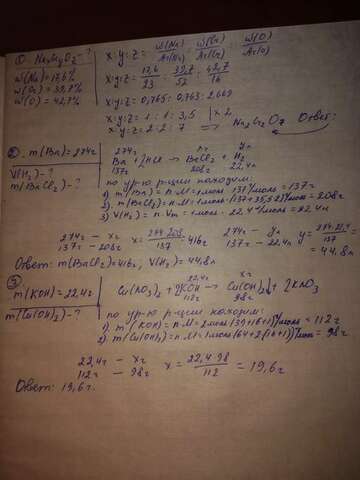 ① NaxCryOz - ?
w(Na) = 17,6%
w(Cr) = 39,7%
w(O) = 42,7%
x:y:z = w(Na)/Ar(Na) : w(Cr)/Ar(Cr) : w(O)/Ar(O)
x:y:z = 17,6/23 : 39,7/52 : 42,7/16
x:y:z = 0,765 : 0,763 : 2,669
x:y:z = 1 : 1 : 3,5 | x 2
x:y:z = 2 : 2 : 7 => Na2Cr2O7 Ответ:
② m(Ba) = 274г
V(H2) - ?
m(BaCl2) - ?
274г xг yл
Ba + 2HCl → BaCl2 + H2
137г 208г 22,4л
по ур-ю р-ции находим:
1) m(Ba) = n·M = 1моль·137г/моль = 137г
2) m(BaCl2) = n·M = 1моль·(137+35,5·2)г/моль = 208г
3) V(H2) = n·Vm = 1моль·22,4л/моль = 22,4л
274г - xг
137г - 208г
x = 274·208/137 = 416г
274г - yл
137г - 22,4л
y = 274·22,4/137 = 44,8л
Ответ: m(BaCl2) = 416г, V(H2) = 44,8л
③ m(KOH) = 22,4г
m(Cu(OH)2) - ?
22,4г xг
Cu(NO3)2 + 2KOH → Cu(OH)2↓ + 2KNO3
112г 98г
по ур-ю р-ции находим:
1) m(KOH) = n·M = 2моль·(39+16+1)г/моль = 112г
2) m(Cu(OH)2) = n·M = 1моль·(64+2(16+1))г/моль = 98г
22,4г - xг
112г - 98г
x = 22,4·98/112 = 19,6г
Ответ: 19,6г.